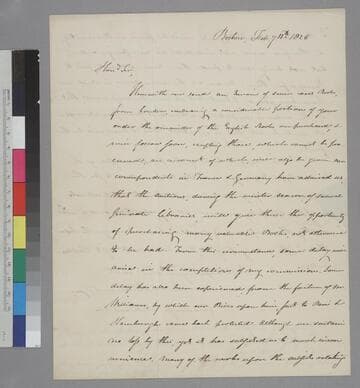 Boston Feb 7th 1825
Hond Sir,
Herewith we send an Invoice of some new Books,
from London, embracing a considerable portion of your
order the remainder of the English Books we purchased, &
now forwarded, excepting those, which cannot be pro
cured, an account of which, we also give. our
correspondents in France & Germany have advised us,
that the auctions, during the winter season of several
private Libraries will give them the opportunity
of purchasing many valuable Books, not otherwise
to be had. From this circumstance, some delay will
arise in the completion of my commission. Some
delay has also been experienced from the failure of Mr.
Williams, by which our Bills upon him sent to Paris &
Hamburgh came back protested. Although we sustain
no loss by this yet it has subjected us to much incon
venience. Many of the works upon the subject relating